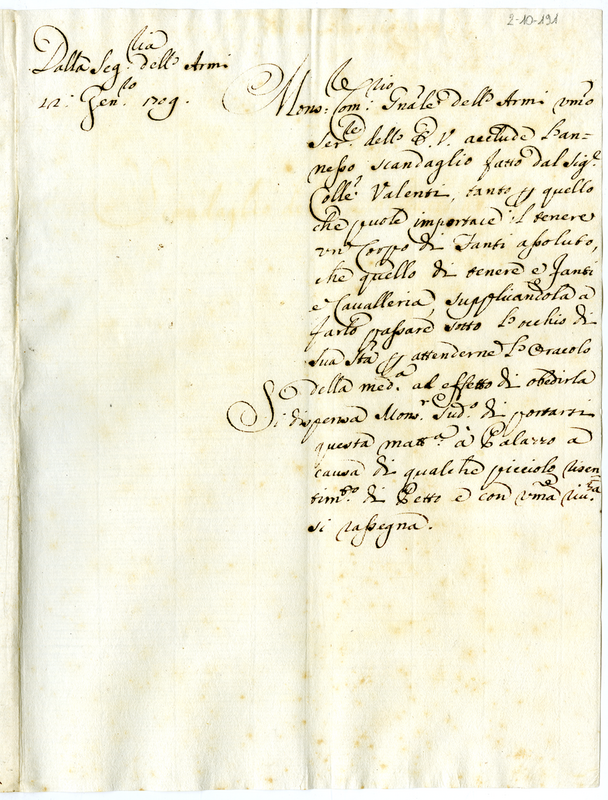 2-10-191
Dalla Seg.ria dell' Armi
12: Gen.ro 1709.
Mons.r Com.rio Gnãle dell' Armi vmõ
Ser.re dell' E. V. acclude l'an-
nesso scandaglio fatto dal Sig.r
Colle.l Valenti, tanto p quello
che puole importare il tenere
vn Corpo di Fanti assoluto,
che quello di tenere e fanti
e Cavalleria, supplicandola a
farlo passare sotto l'occhio di
Sua Stà p attenderne l'Oracolo
della med.a al effetto di obedirla
Si dispensa Mons.r Sud.o di portarsi
questa matt.a à Palazzo a
causa di qualche picciolo risen-
tim.to di Petto e con vmã riu.za
si rassegna.